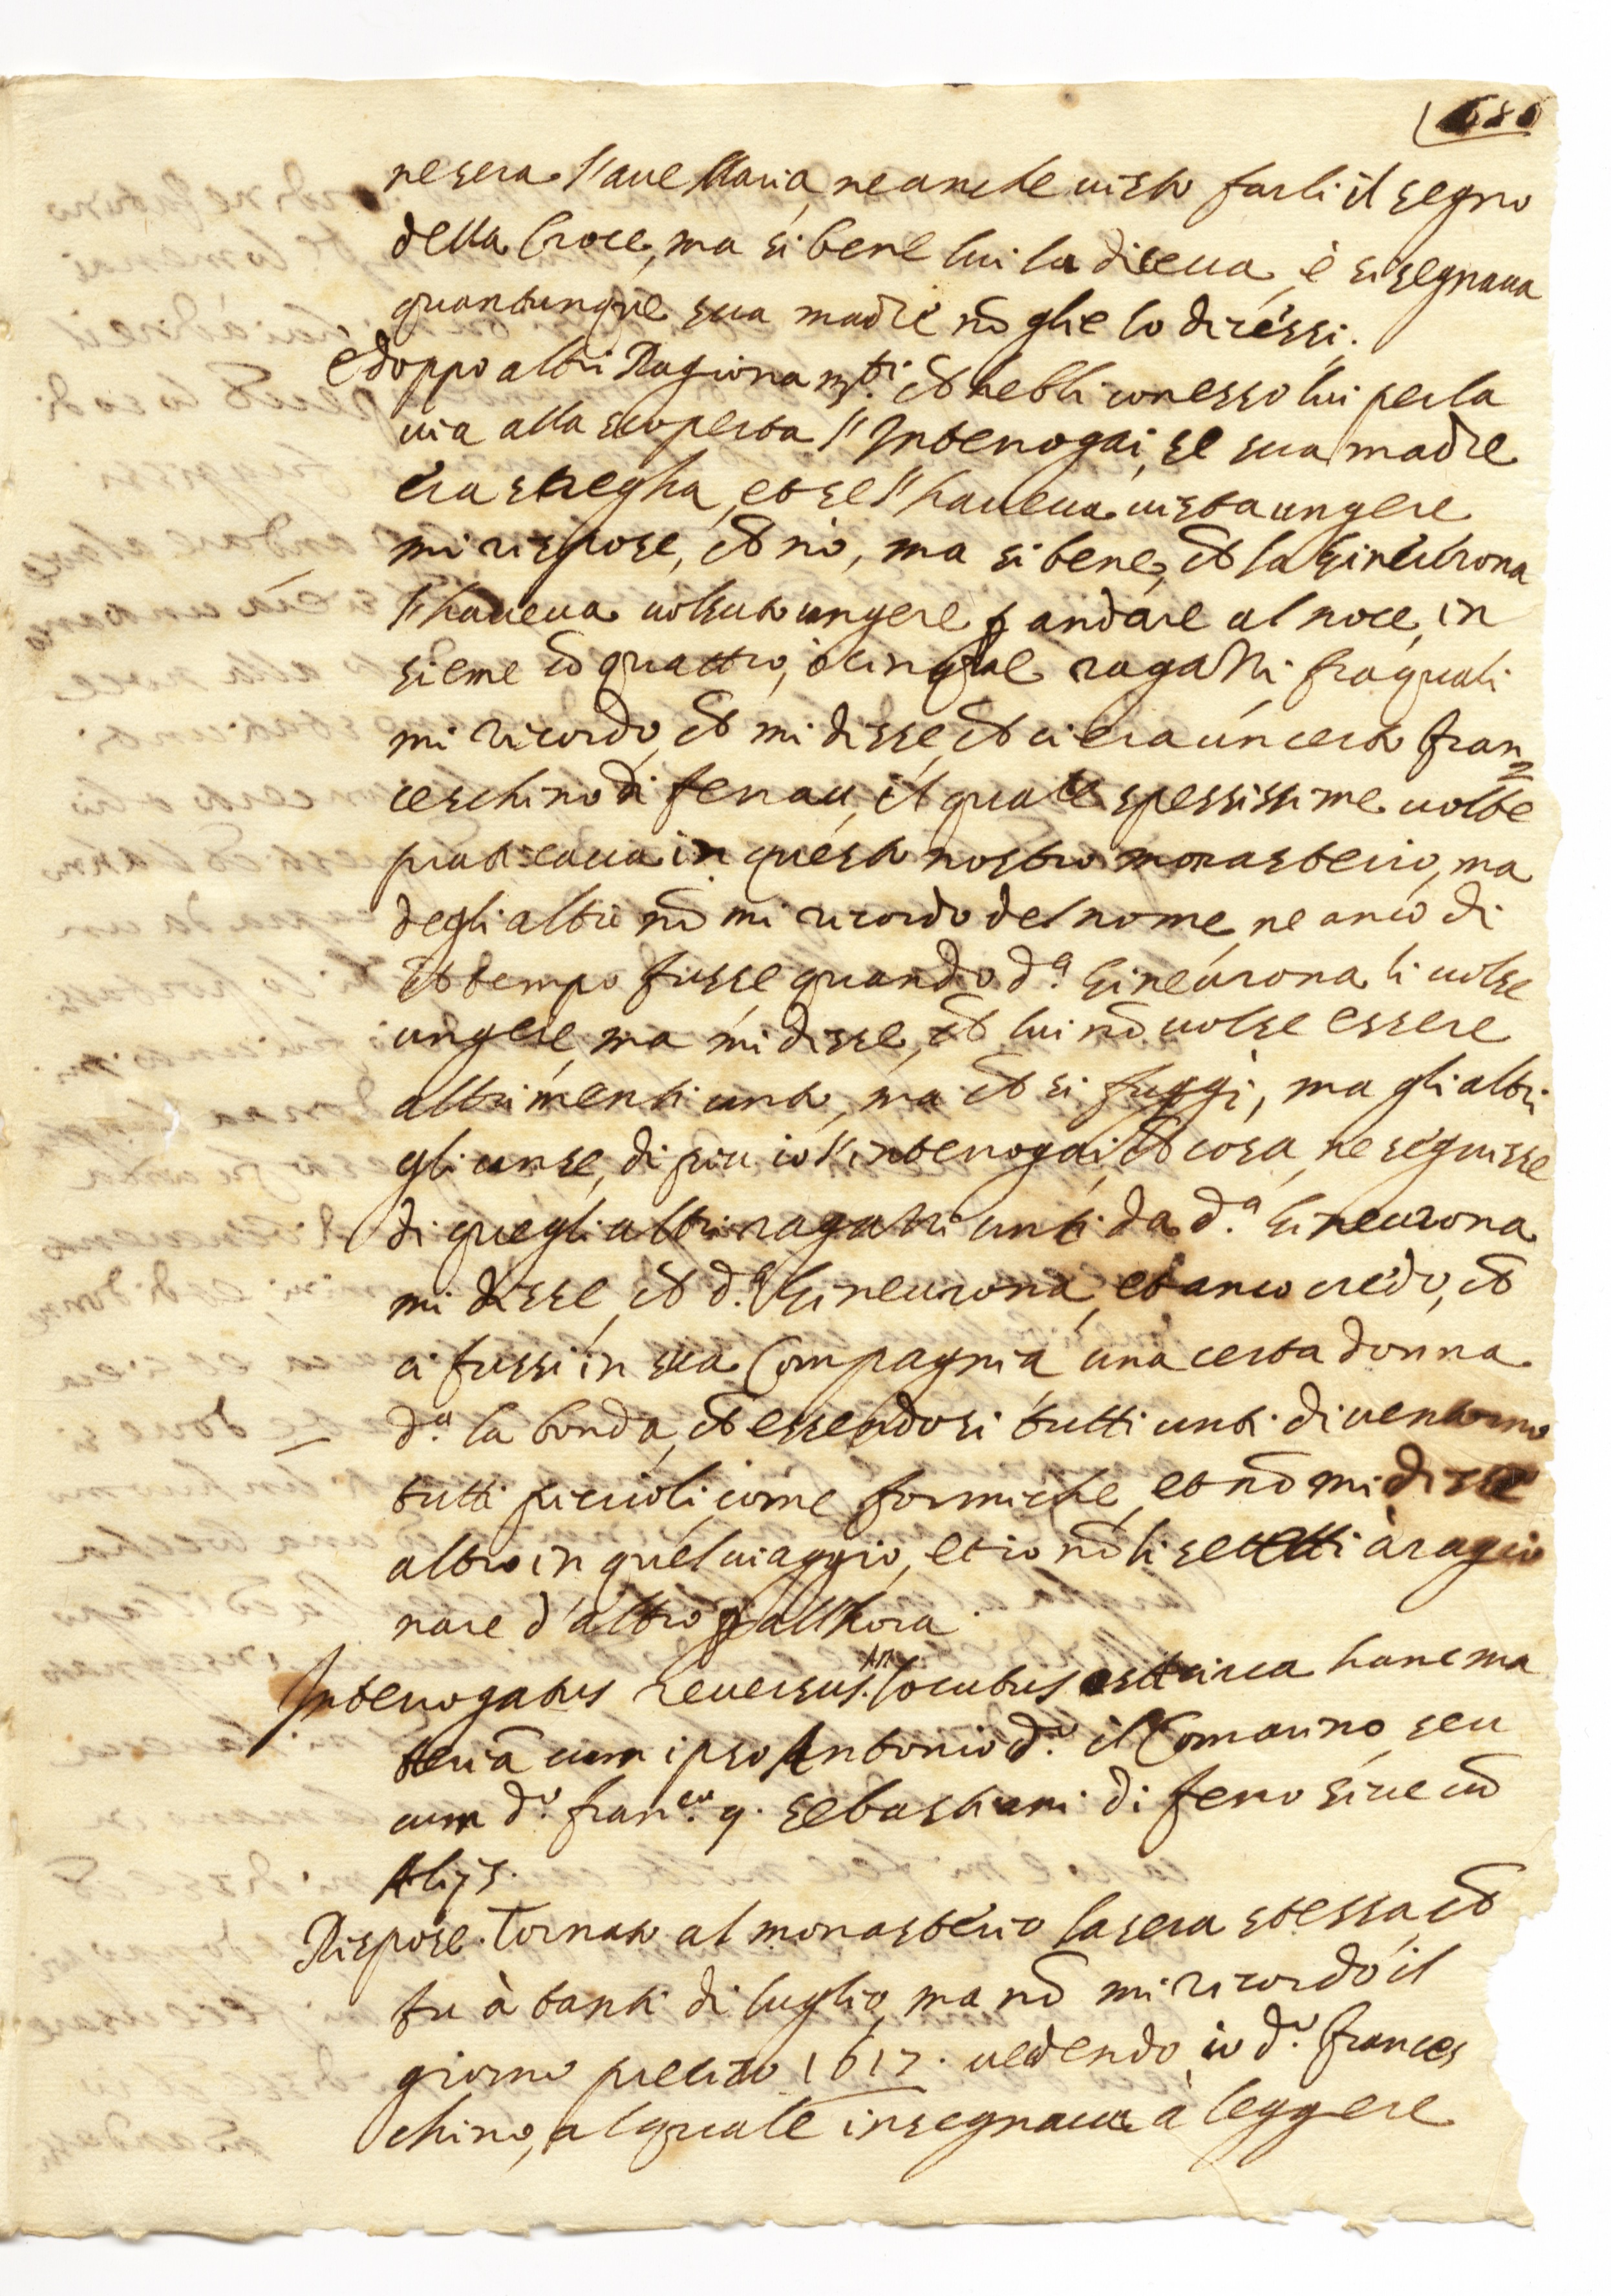 ne sera l'aue Maria, ne anche uisto farli il segno
della Croce, ma si bene lui la diceua, è si segnaua
quantunque sua madre nõ glie lo dicessi.
e doppo altri Ragionam.ti ch hebbi con esso lui per la
uia alla scoperta l'Interrogai, se sua madre
era stregha, et se l'haueua uista ungere
mi rispose, ch nò, ma si bene, ch la Gineurona
l'haueua uolsuto ungere p andare al noce, in
sieme cõ quattro, ò cinque ragazzi fra quali
mi ricordo, ch mi disse, ch ci era un certo Fran
ceschino di ferrau, il quale spessissime uolte
praticaua in questo nostro monasterio, ma
degli altri nõ mi ricordo del nome, ne anco di
ch tempo fusse quando d.a Gineurona li uolse
ungere, ma mi disse, ch lui nõ uolse essere
altrimenti unto, ma ch si fuggì, ma gli altri
gli unse, di piu io l'interrogai, ch cosa ne seguisse
di quegli altri ragazzi unti da d.a Gineurona
mi disse, ch d.a Gineurona, et anco credo, ch
ci fussi in sua Compagnia una certa donna
d.a la bonda, ch essendosi tutti unti diuentorno
tutti piccioli, come formiche, et nõ mi disse
altro in quel uiaggio, et io nõ li stetti à ragio
nare d'altro p all'hora.
Interrogatus reuersus. An locutus est circa hanc ma
teriã cum ipso Antonio d.o il Comarino, seu
cum d.o Fran.co q. Sebastiani di ferro siue cũ
Alijs.
Rispose. Tornato al monasterio la sera stessa, ch
fu à tanti di luglio, ma nõ mi ricordo il
giorno preciso 1617. uedendo io d.o Frances
chino, al quale insegnaua à leggere